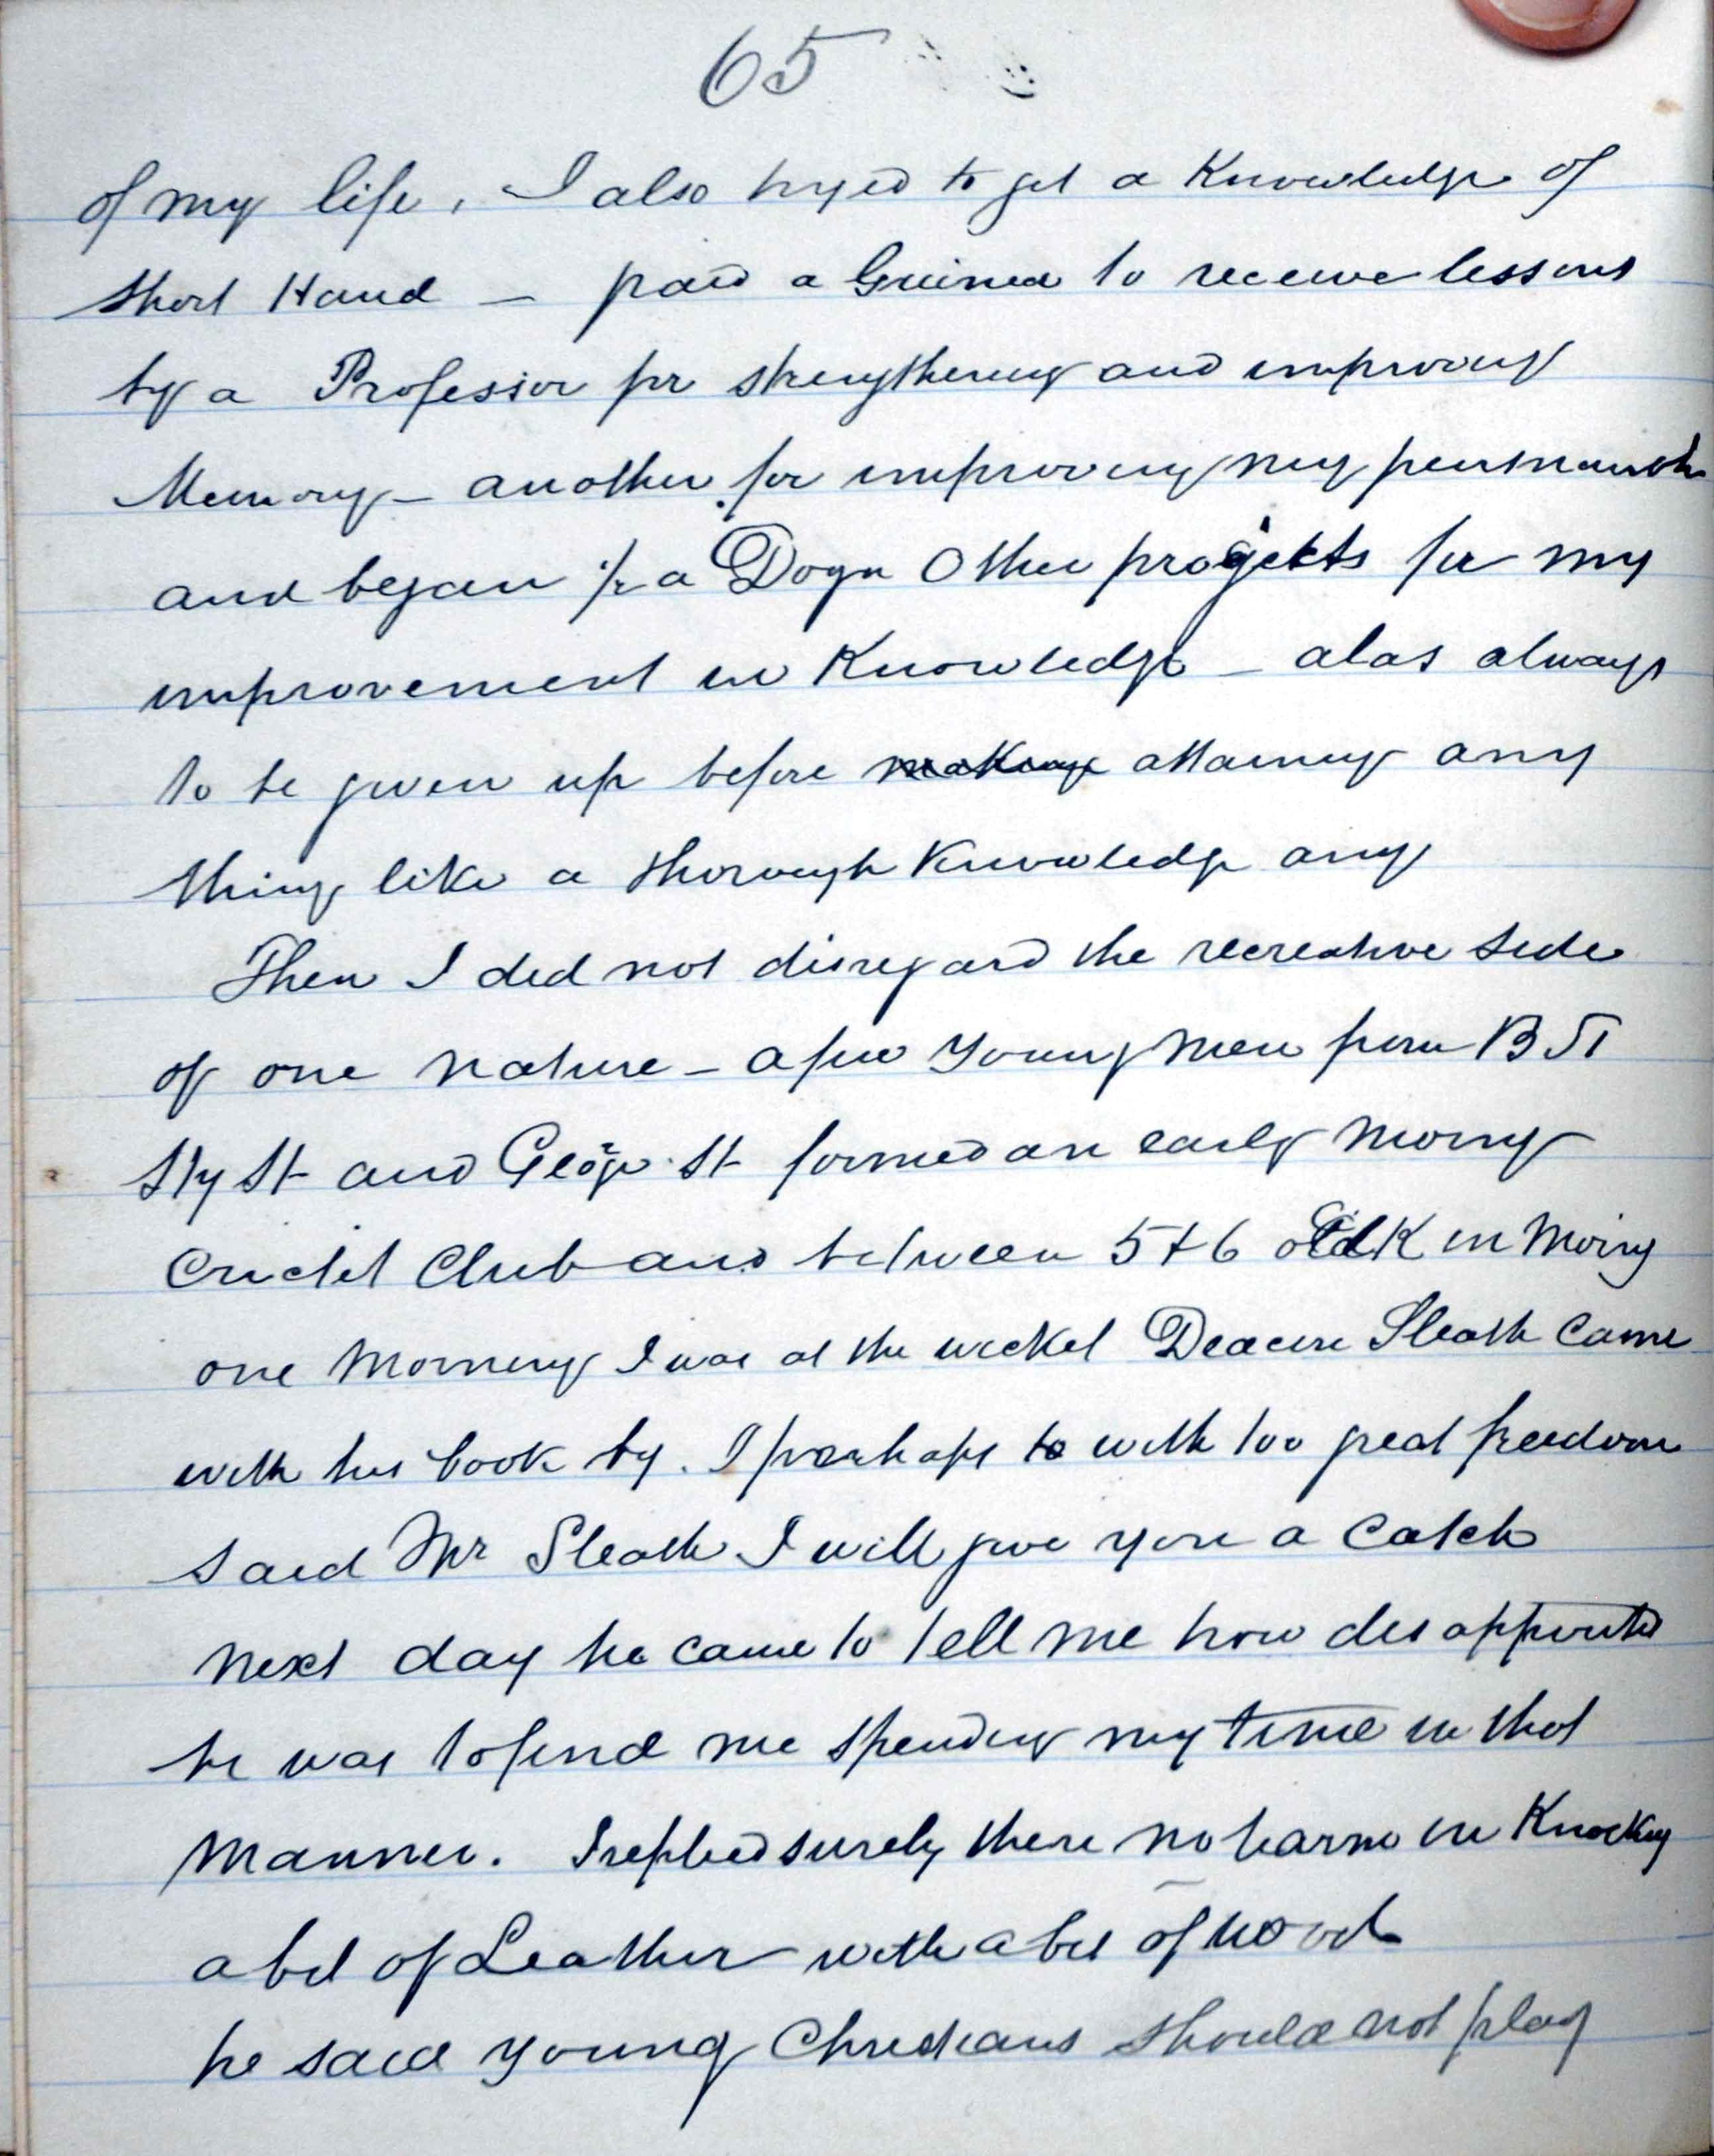 65
of my life, I also tryed to get a Knowledge of
Short Hand – paid a Guinea to receive lessons
by a Professor for strengthening and improving
Memory – another for improving my penmansh
and began a Dozn Other projects for my
improvement in Knowledge – alas always
to be given up before making attaining any
thing like a thorough Knowledge any
Then I did not disregard the recreative side
of one nature – a few Young Men from B St
St and George St formed an early Morng
Cricket Club and between 5 + 6 oClK in Morng
one Morning I was at the wicket Deacon Sleath Came
with his book by. I perhaps to with too great freedom
said Mr Sleath I will give you a Catch
next day he came to tell me how disappointed
he was to find me spending my time in that
Manner. I replied surely there no harm in Knocking
a bit of Leather with a bit of wood
he said young Christians should not play